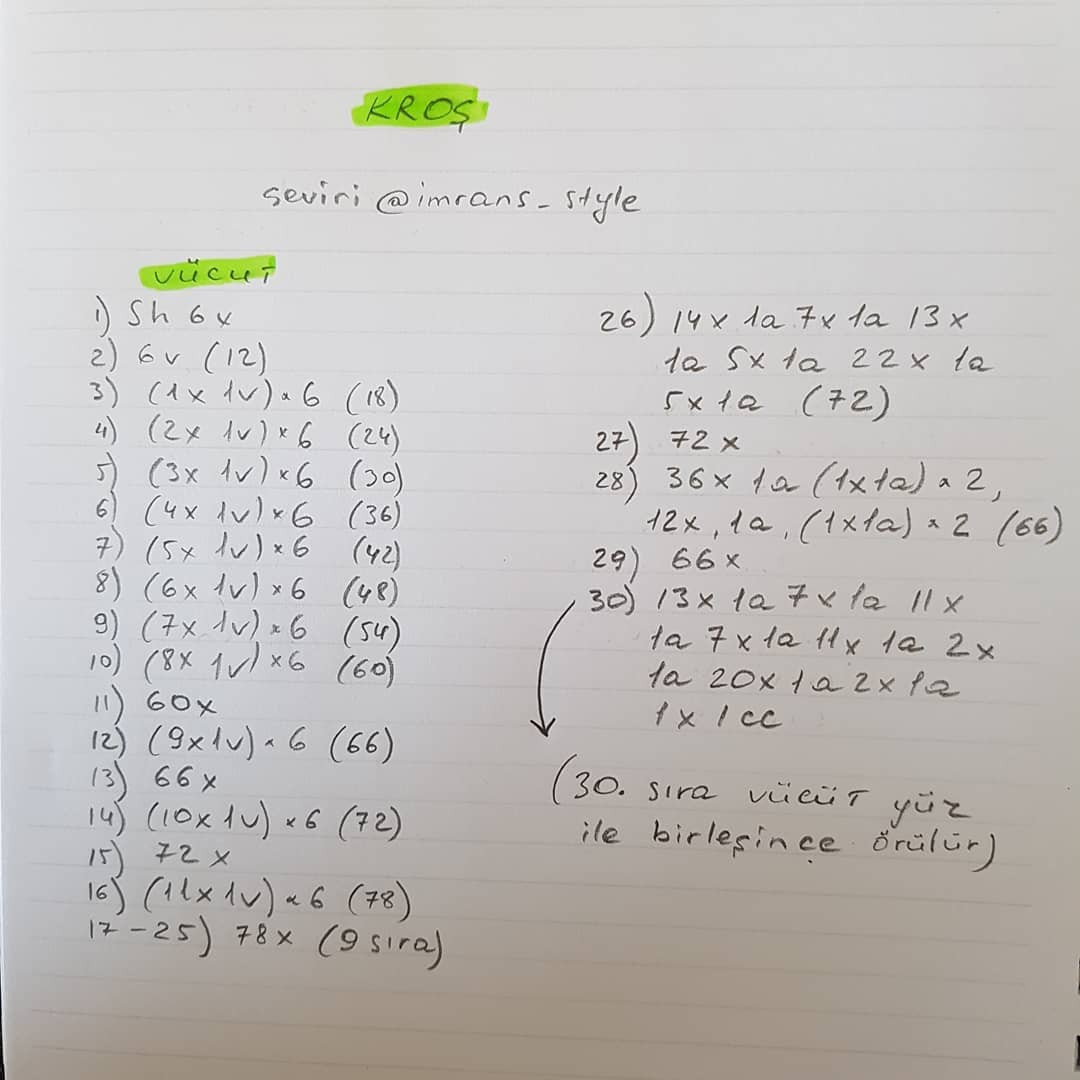 KROŞ
çeviri @imrans_style
VÜCUT
1) Sh 6x
2) 6v (12)
3) (1x 1v) × 6 (18)
4) (2x 1v) × 6 (24)
5) (3x 1v) × 6 (30)
6) (4x 1v) × 6 (36)
7) (5x 1v) × 6 (42)
8) (6x 1v) × 6 (48)
9) (7x 1v) × 6 (54)
10) (8x 1v) × 6 (60)
11) 60x
12) (9x 1v) × 6 (66)
13) 66x
14) (10x 1v) × 6 (72)
15) 72x
16) (11x 1v) × 6 (78)
17-25) 78x (9 sıra)
26) 14x 1a 7x 1a 13x
1a 5x 1a 22x 1a
5x 1a (72)
27) 72x
28) 36x 1a (1x1a) × 2,
12x, 1a, (1x1a) × 2 (66)
29) 66x
30) 13x 1a 7x 1a 11x
1a 7x 1a 11x 1a 2x
1a 20x 1a 2x 1a
1x 1cc
(30. sıra vücüt yüz
ile birleşinçe örülür)